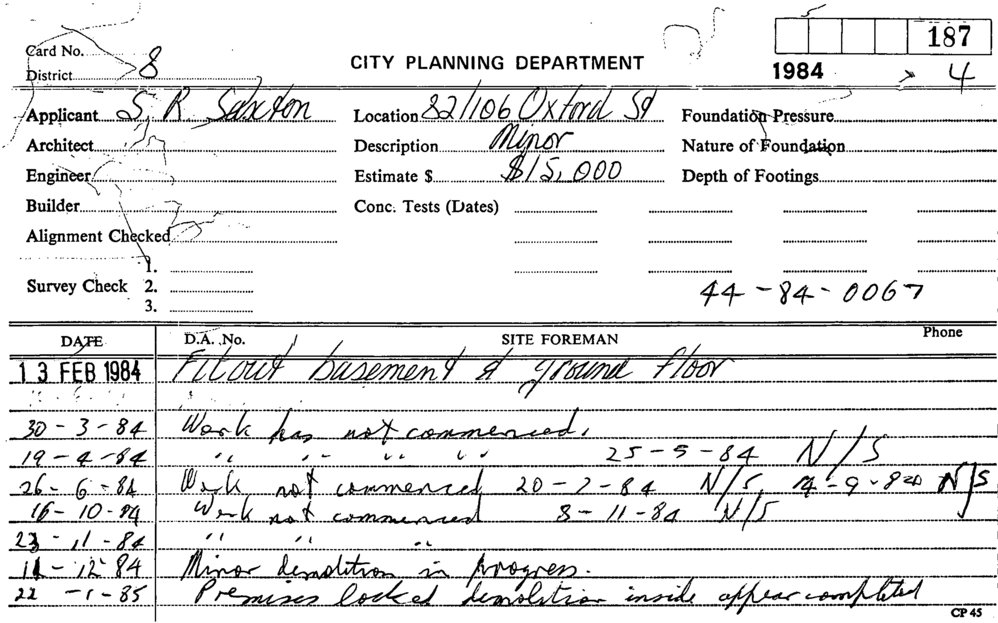 187
Card No.
District 8
CITY PLANNING DEPARTMENT
1984 4
Applicant S. R. Saxton
Location 82/106 Oxford St
Foundation Pressure
Architect
Description Minor
Nature of Foundation
Engineer
Estimate $ $15,000
Depth of Footings
Builder
Conc. Tests (Dates)
Alignment Checked
Survey Check 1.
2.
3.
44-84-0067
DATE D.A. No. SITE FOREMAN Phone
13 FEB 1984 Fitout basement & ground floor
30-3-84 Work has not commenced.
19-4-84 " " " " 25-5-84 N/S
26-6-84 Work not commenced 20-7-84 N/S 14-9-84 N/S
16-10-84 Work not commenced 8-11-84 N/S
23-11-84 " " "
11-12-84 Minor demolition in progress.
22-1-85 Premises locked demolition inside appear completed
CP 45